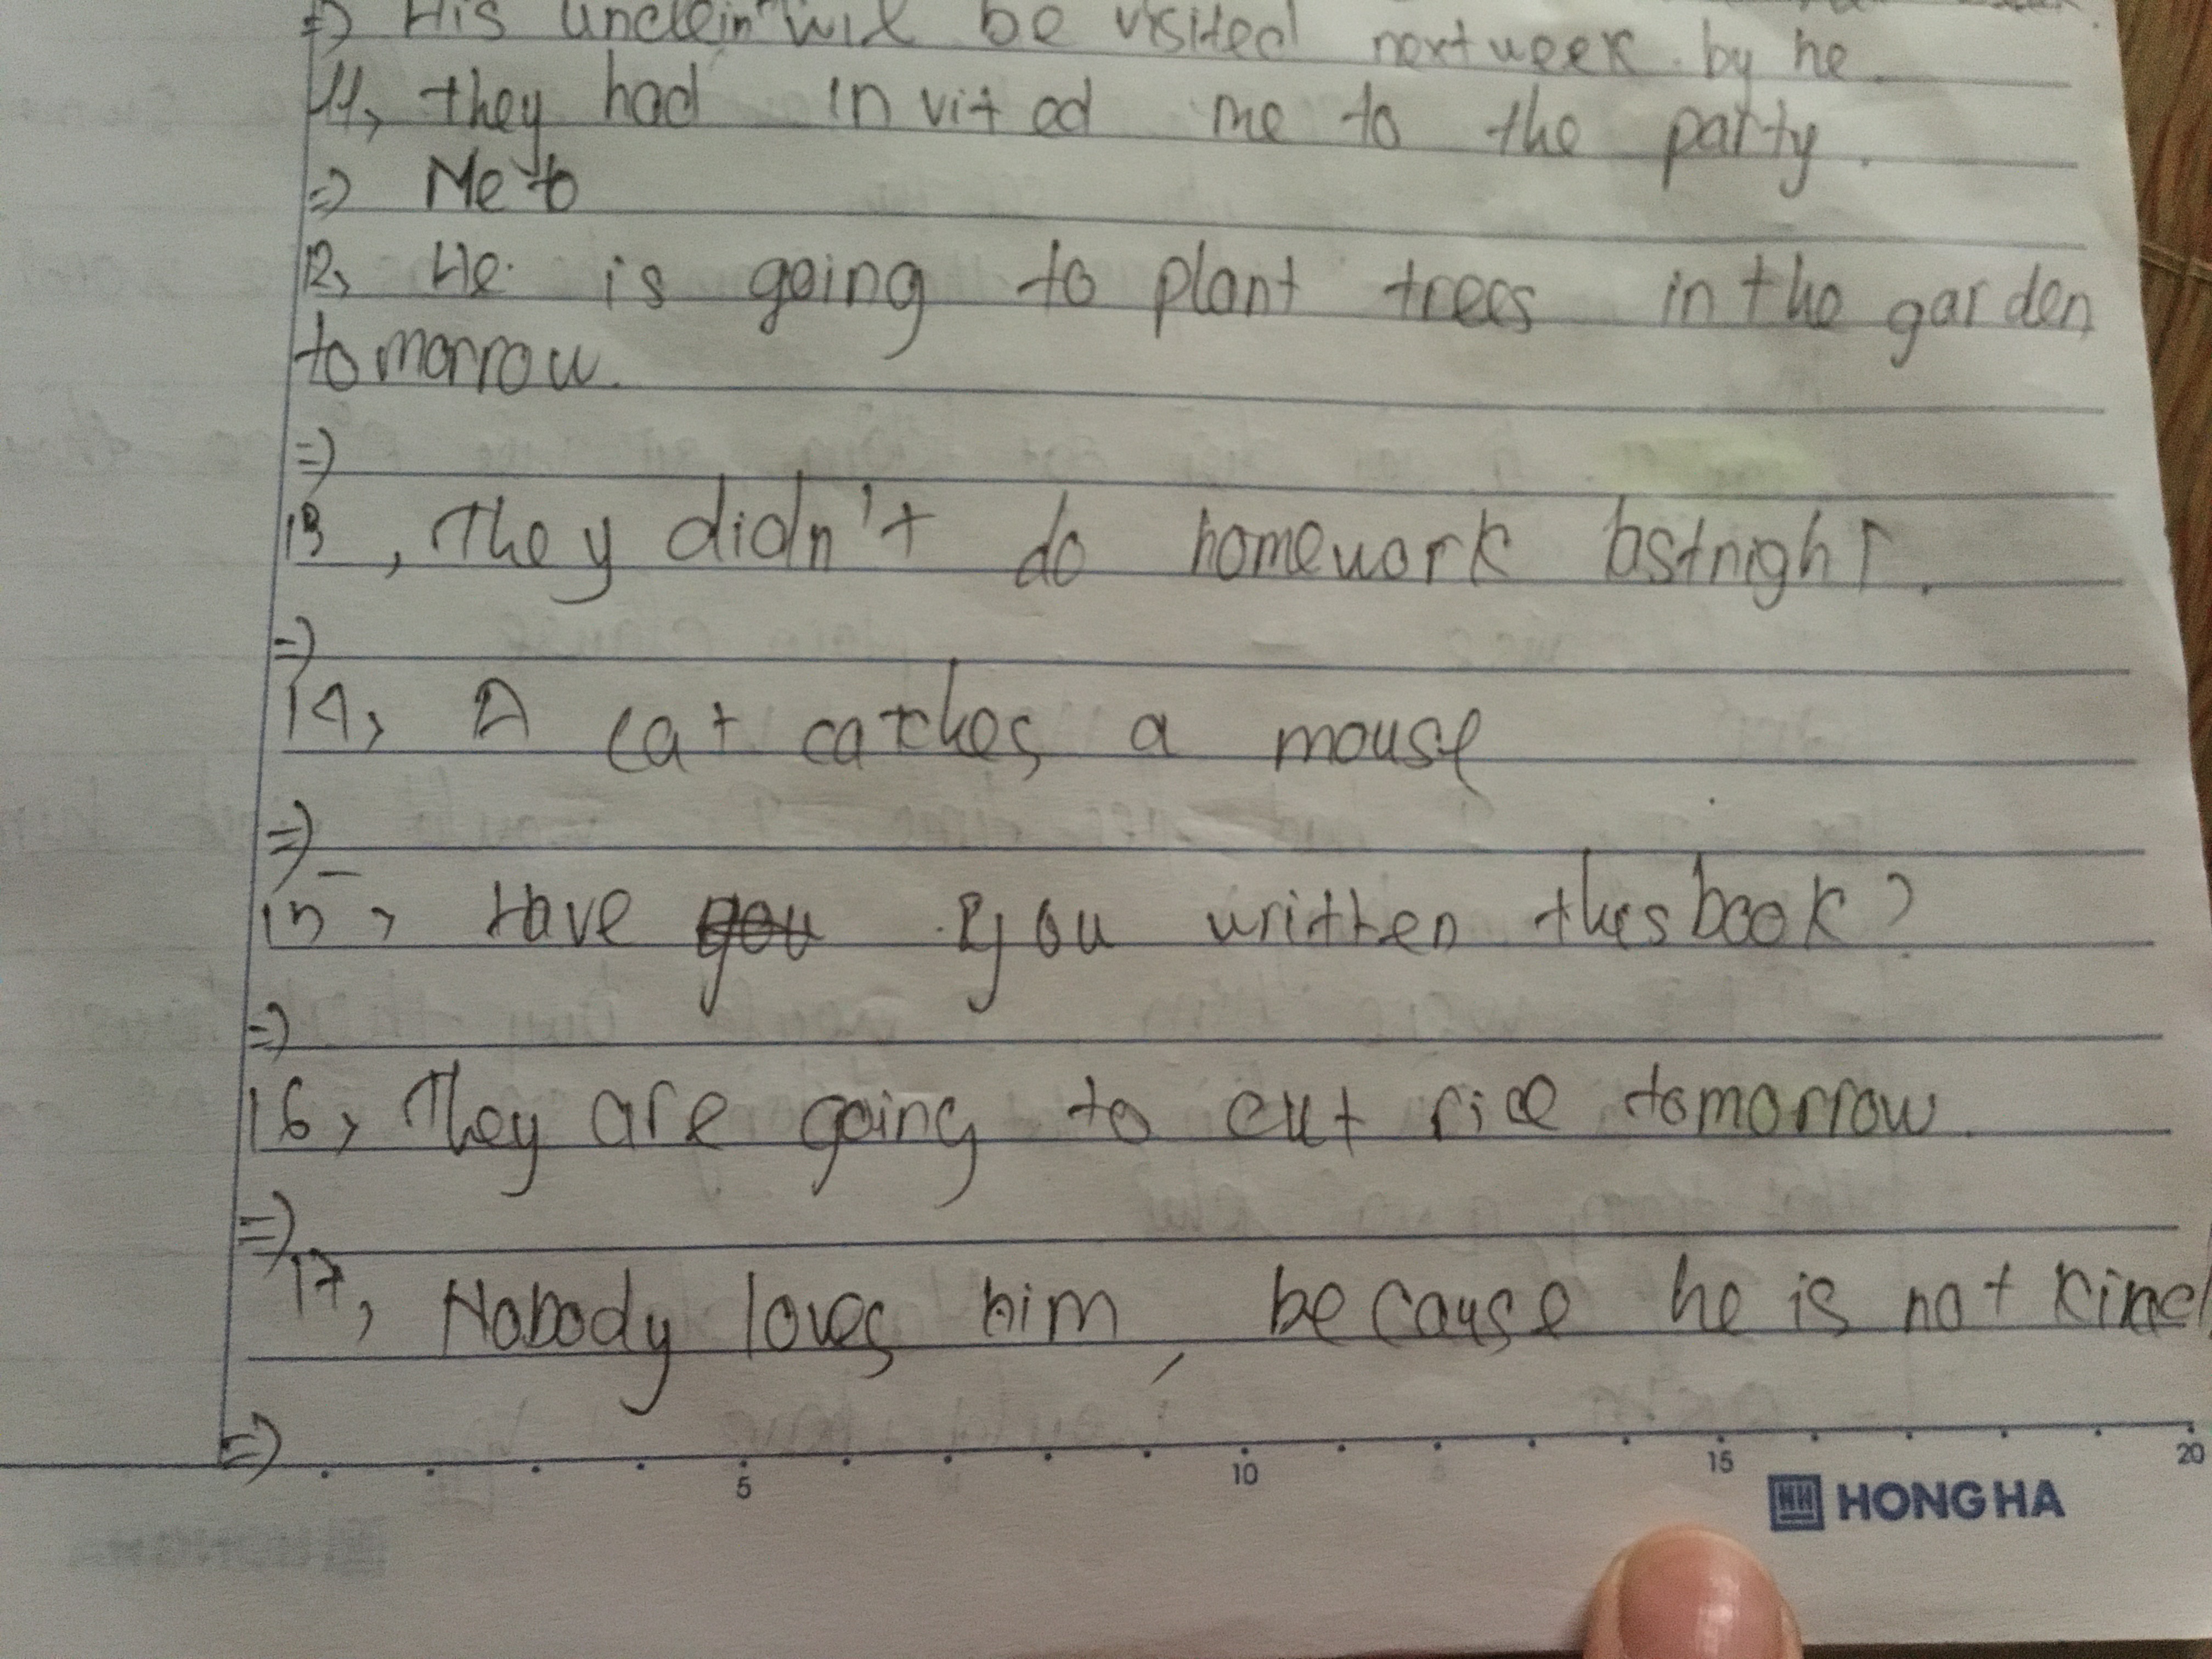 => His unclein will be visited next week. by he.
11, they had invited me to the party.
=> Me to
12, He is going to plant trees in the garden
tomorrow.
=>
13, They didn't do homework lastnight.
=>
14, A cat catches a mouse
=>
15, Have you written this book?
=>
16, They are going to cut rice tomorrow.
=>
17, Nobody loves him, because he is not kind
=>
5 10 15 20
HONG HA